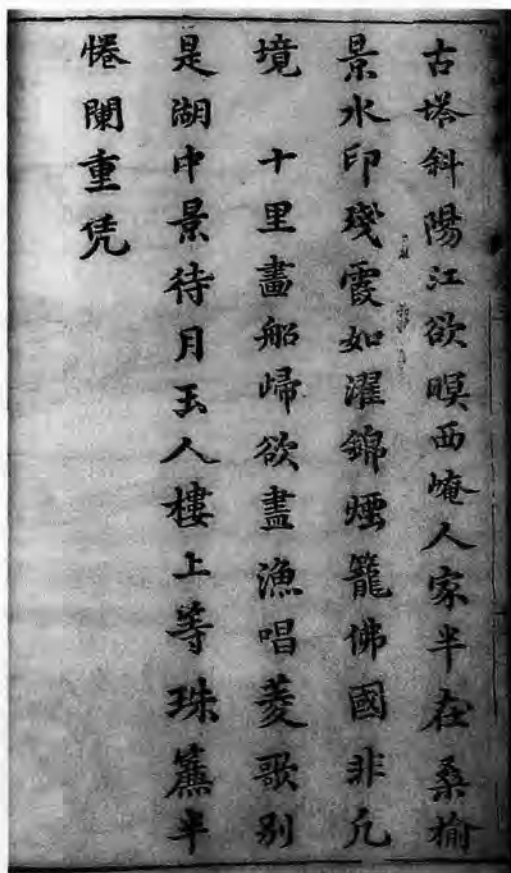 古塔斜陽江欲暝西崦人家半在桑榆
景水印殘霞如濯錦煙籠佛國非凡
境　十里畫船歸欲盡漁唱菱歌別
是湖中景待月玉人樓上等珠簾半
惓闌重凭